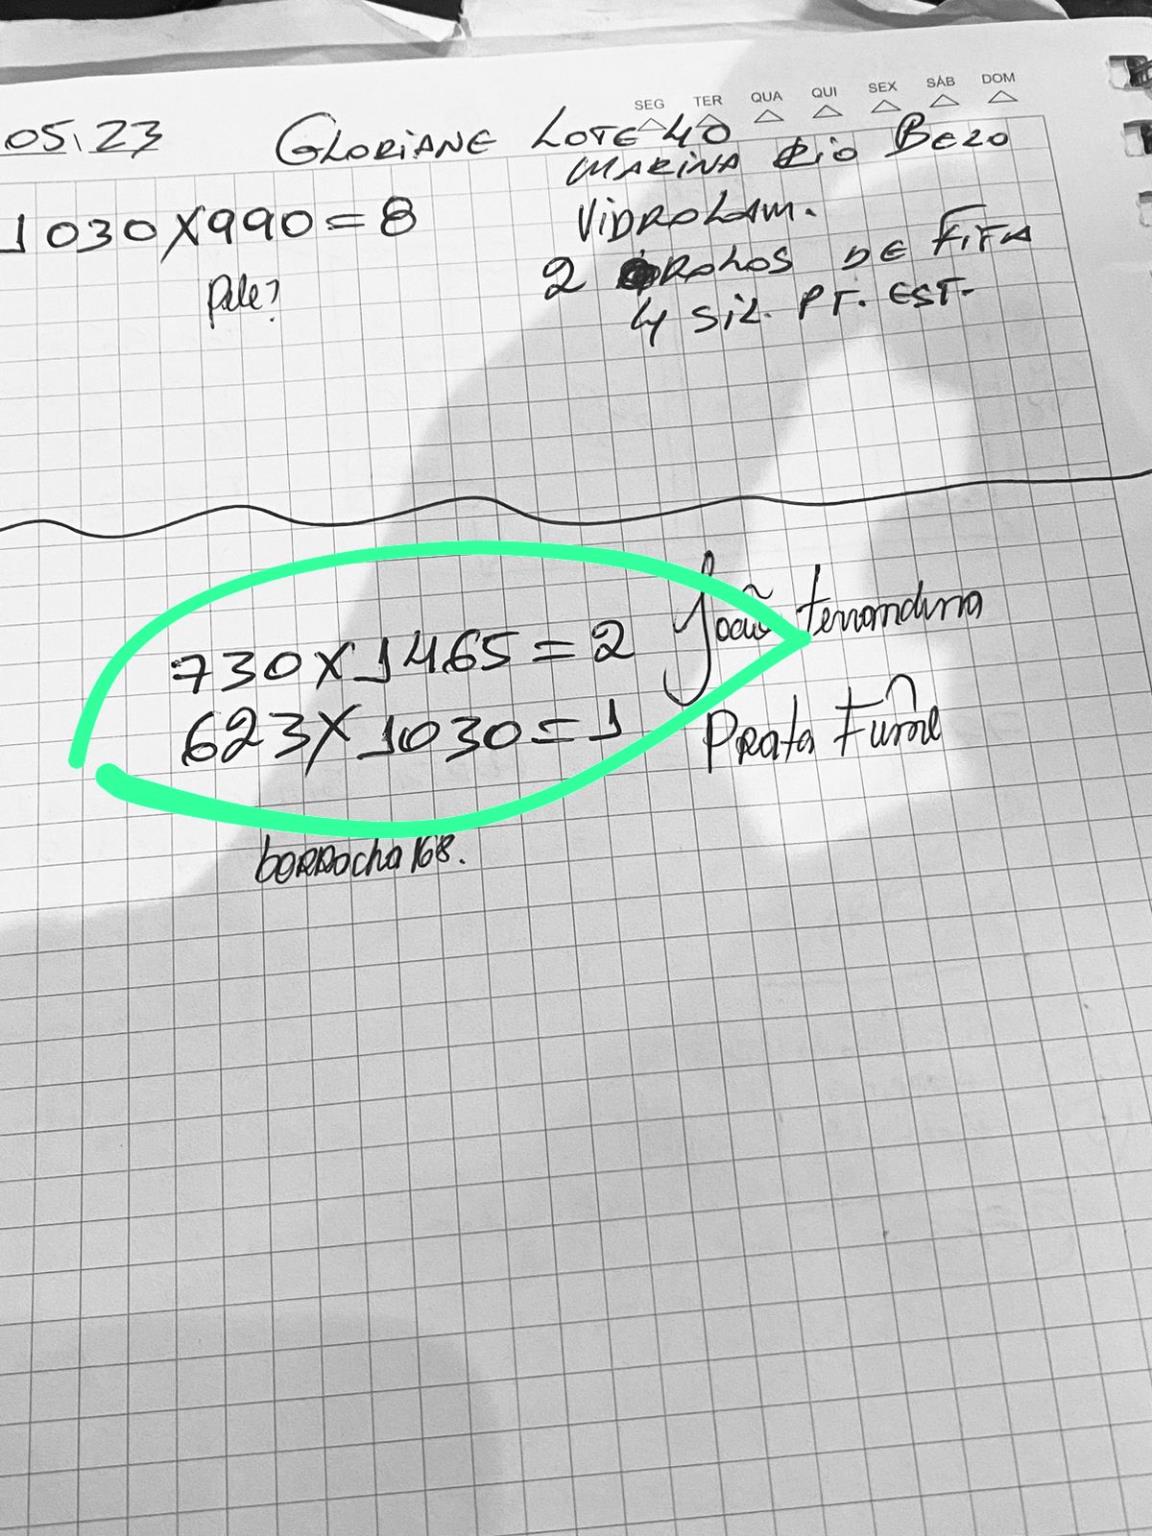 SEG TER QUA QUI SEX SÁB DOM
05.23 GLORIANE LOTE 40
MARINA RIO BEZO
1030X990=8
VIDROLAM.
Pele?
2 ROLOS DE FITA
4 SIL. PT. EST.
730X1465=2 João
623X1030=1 Prata Fumê
borracha 168.